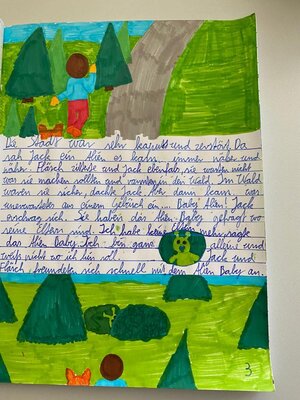 Die Stadt war sehr kaputt und zerstört. Da
sah Jack ein Alien es kam immer näher und
näher. Pfirsch zitterte und Jack ebenfals, sie wusten nicht
was sie machen sollten und rannten in den Wald. Im Wald
waren sie sicher, dachte Jack. Aber dann kam was
unerwartetes aus einem Gebüsch ein... Baby Alien! Jack
erschrag sich. Sie haben das Alien-Baby gefragt wo
seine Eltern sind. Ich habe keine Eltern mehr, sagte
das Alien Baby. Ich bin ganz allein und
weiß nicht wo ich hin soll. Jack und
freundeten sich schnell mit dem Alien Baby an.
3